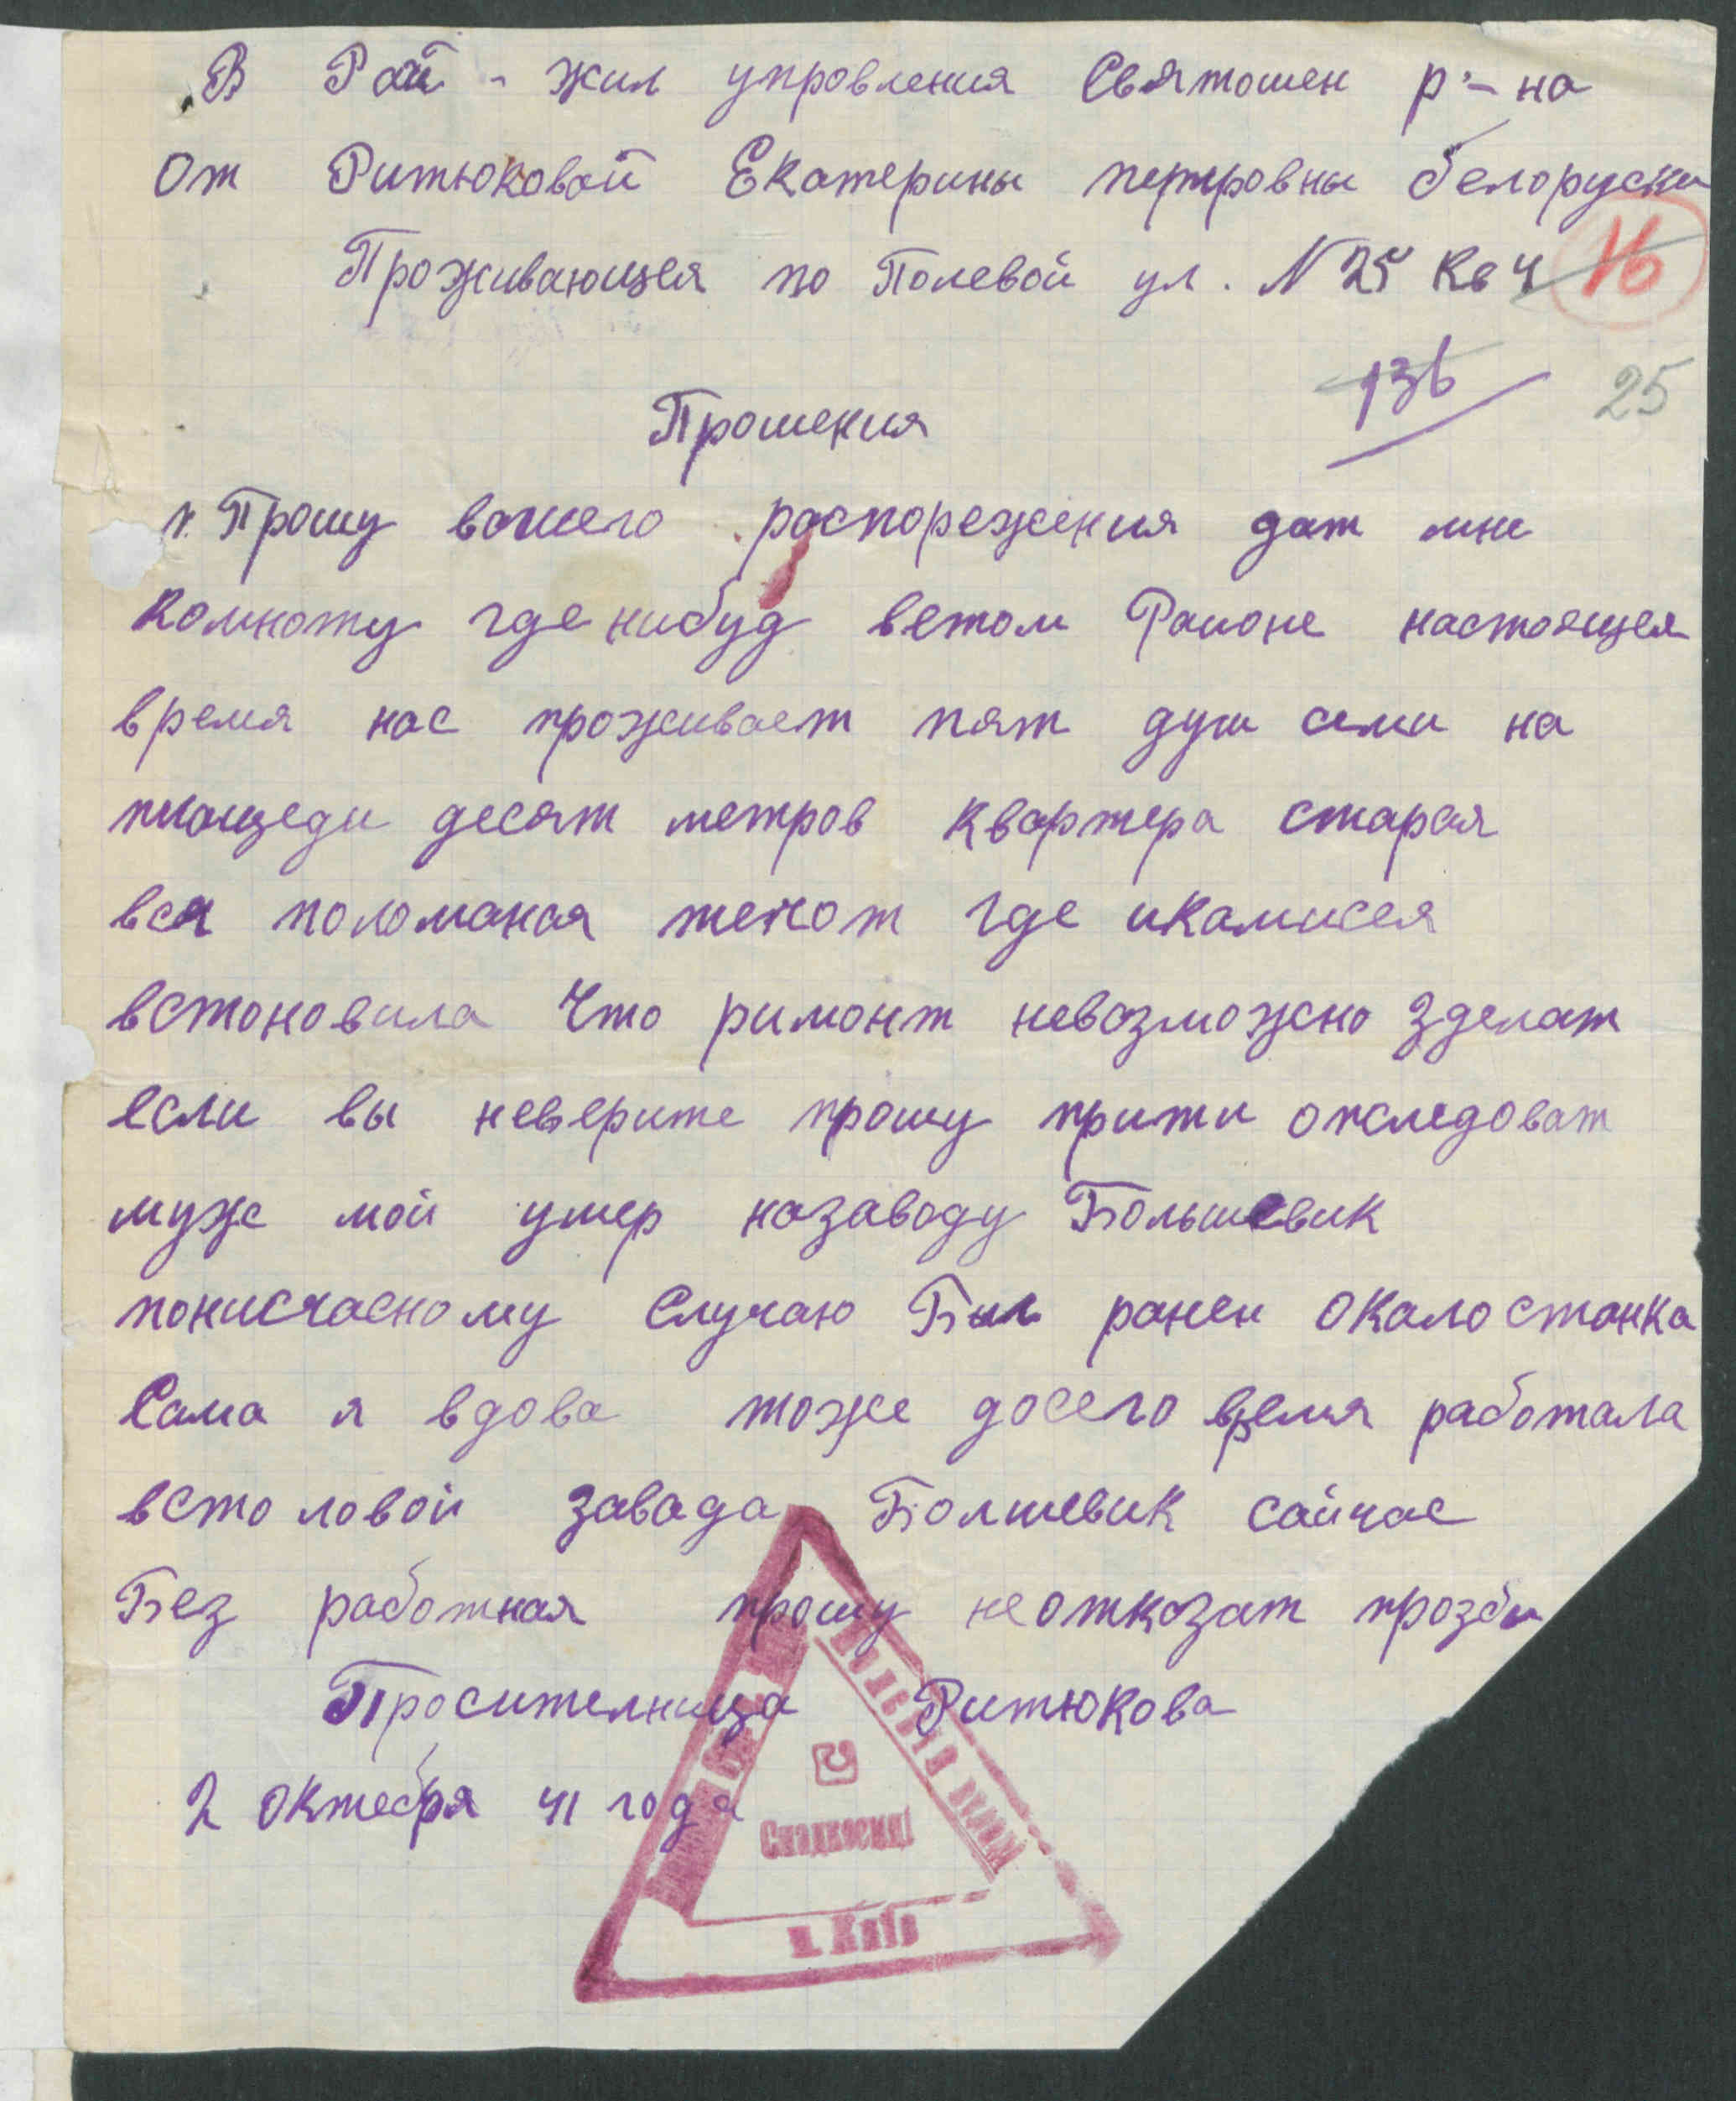 В Рай - жил упровления Святошен р-на
От Ритюковой Екатерины петровны белоруски
Проживающея по Полевой ул. N 25 кв 4
16
136
25
Прошения
Прошу вашего распорежения дат мне
комноту где нибуд ветом Районе настоящея
время нас проживает пят душ семи на
площеди десят метров квартера старая
вся поломаная течот где икамисея
встоновила Что римонт невозможно зделат
если вы неверите прошу прити отследоват
муже мой умер назаводу Большевик
понисчасному Случаю Был ранен окало станка
Сама я вдова тоже досего время работала
встоловой завада Болшевик сайчас
Без работная прошу не отказат прозби
Просителница Ритюкова
2 октебря 41 года
м. Київ